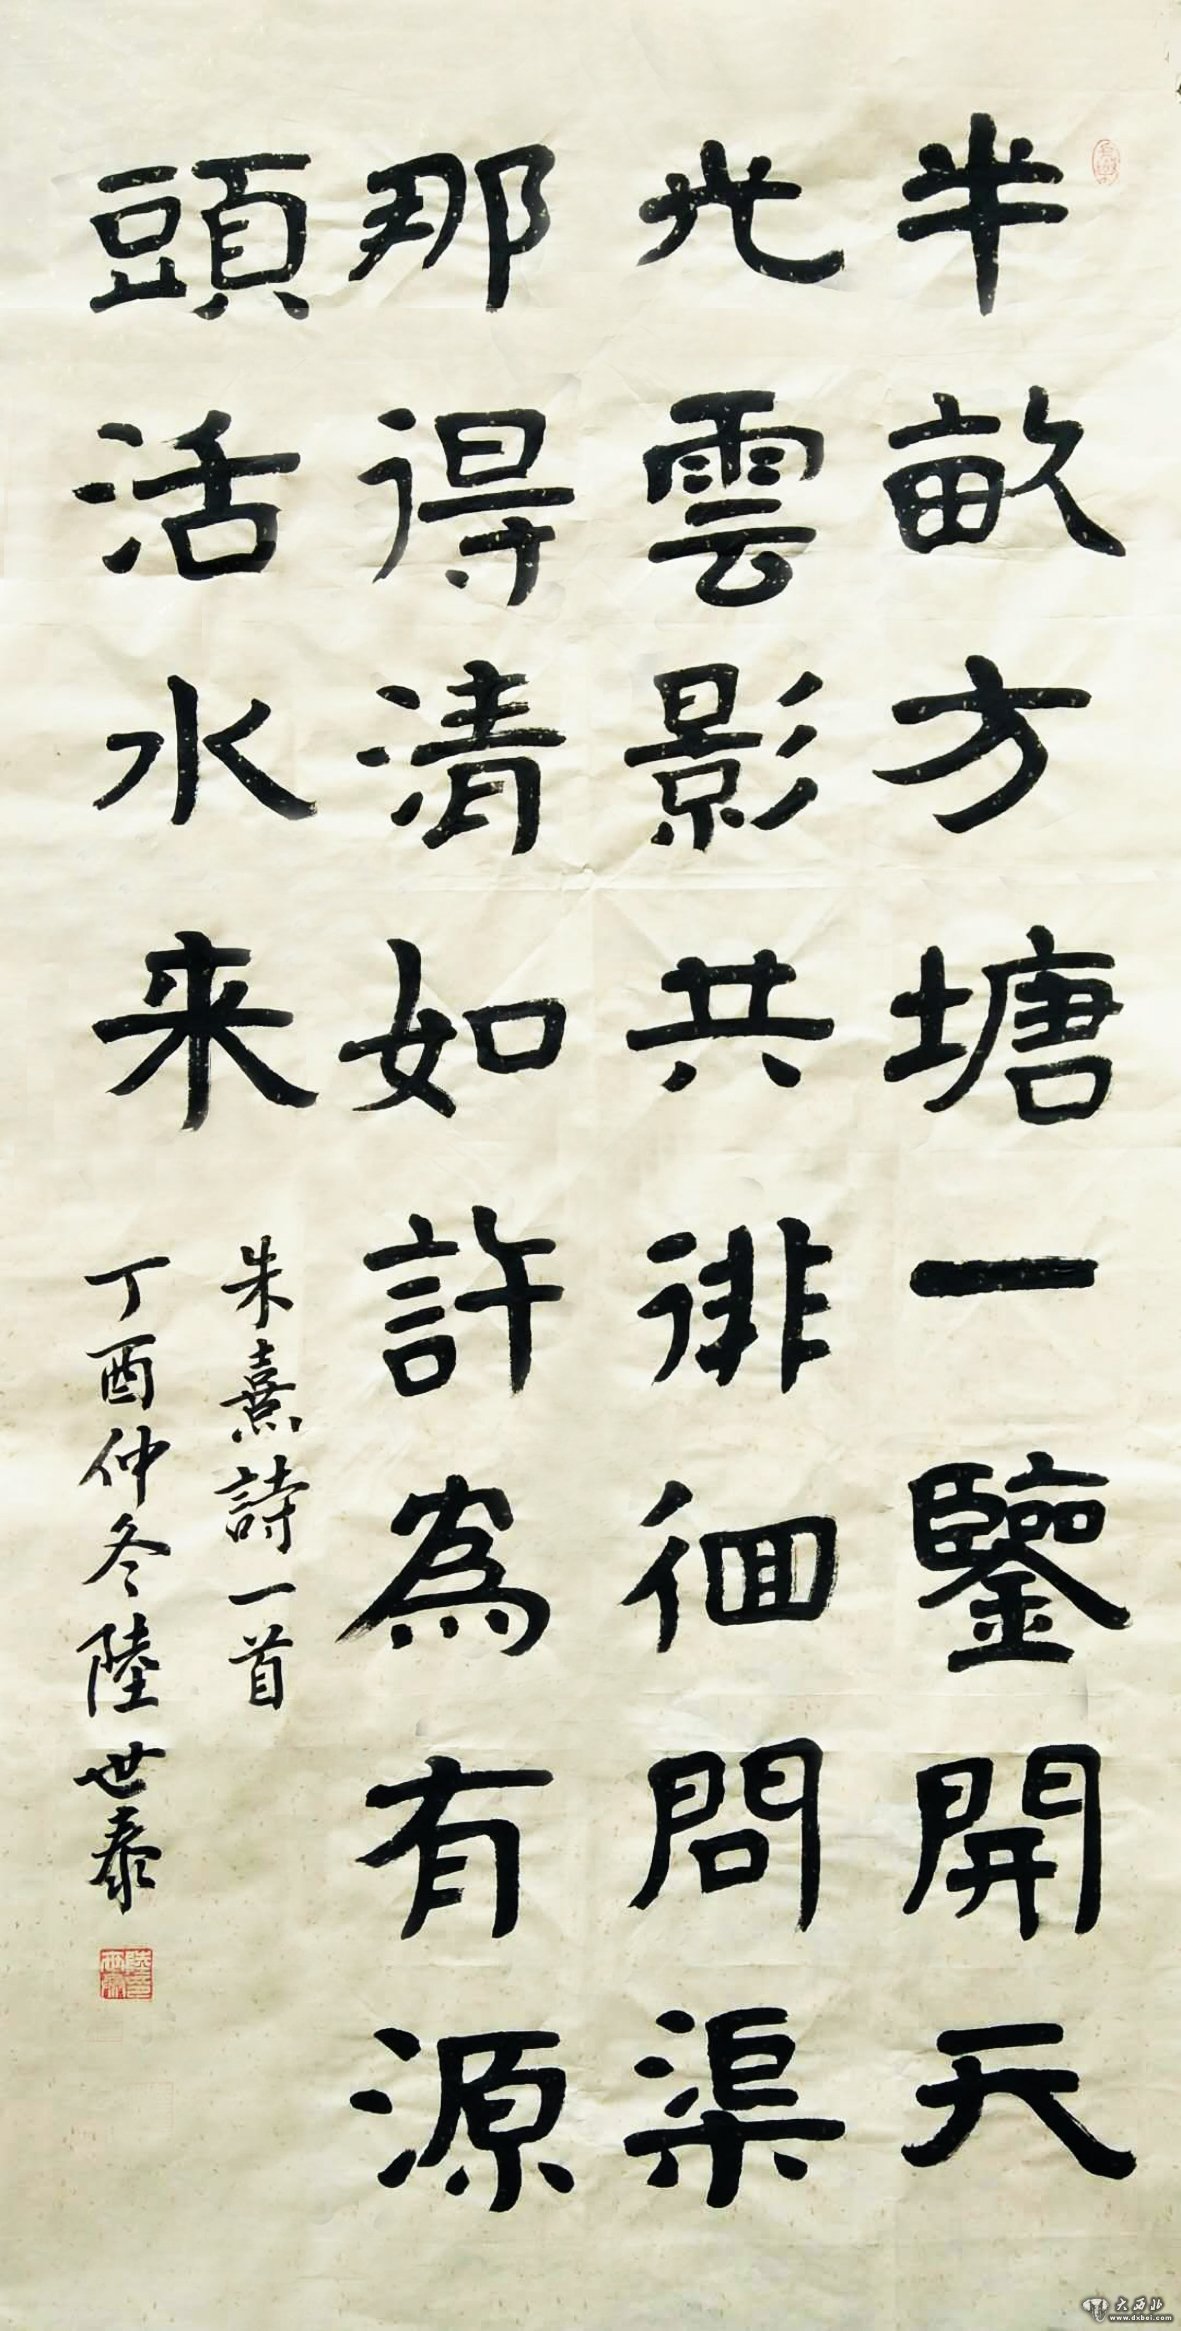 半畝方塘一鑒開天
光雲影共徘徊問渠
那得清如許為有源
頭活水来
朱熹詩一首
丁酉仲冬陸世泰
大西北
www.dxbei.com